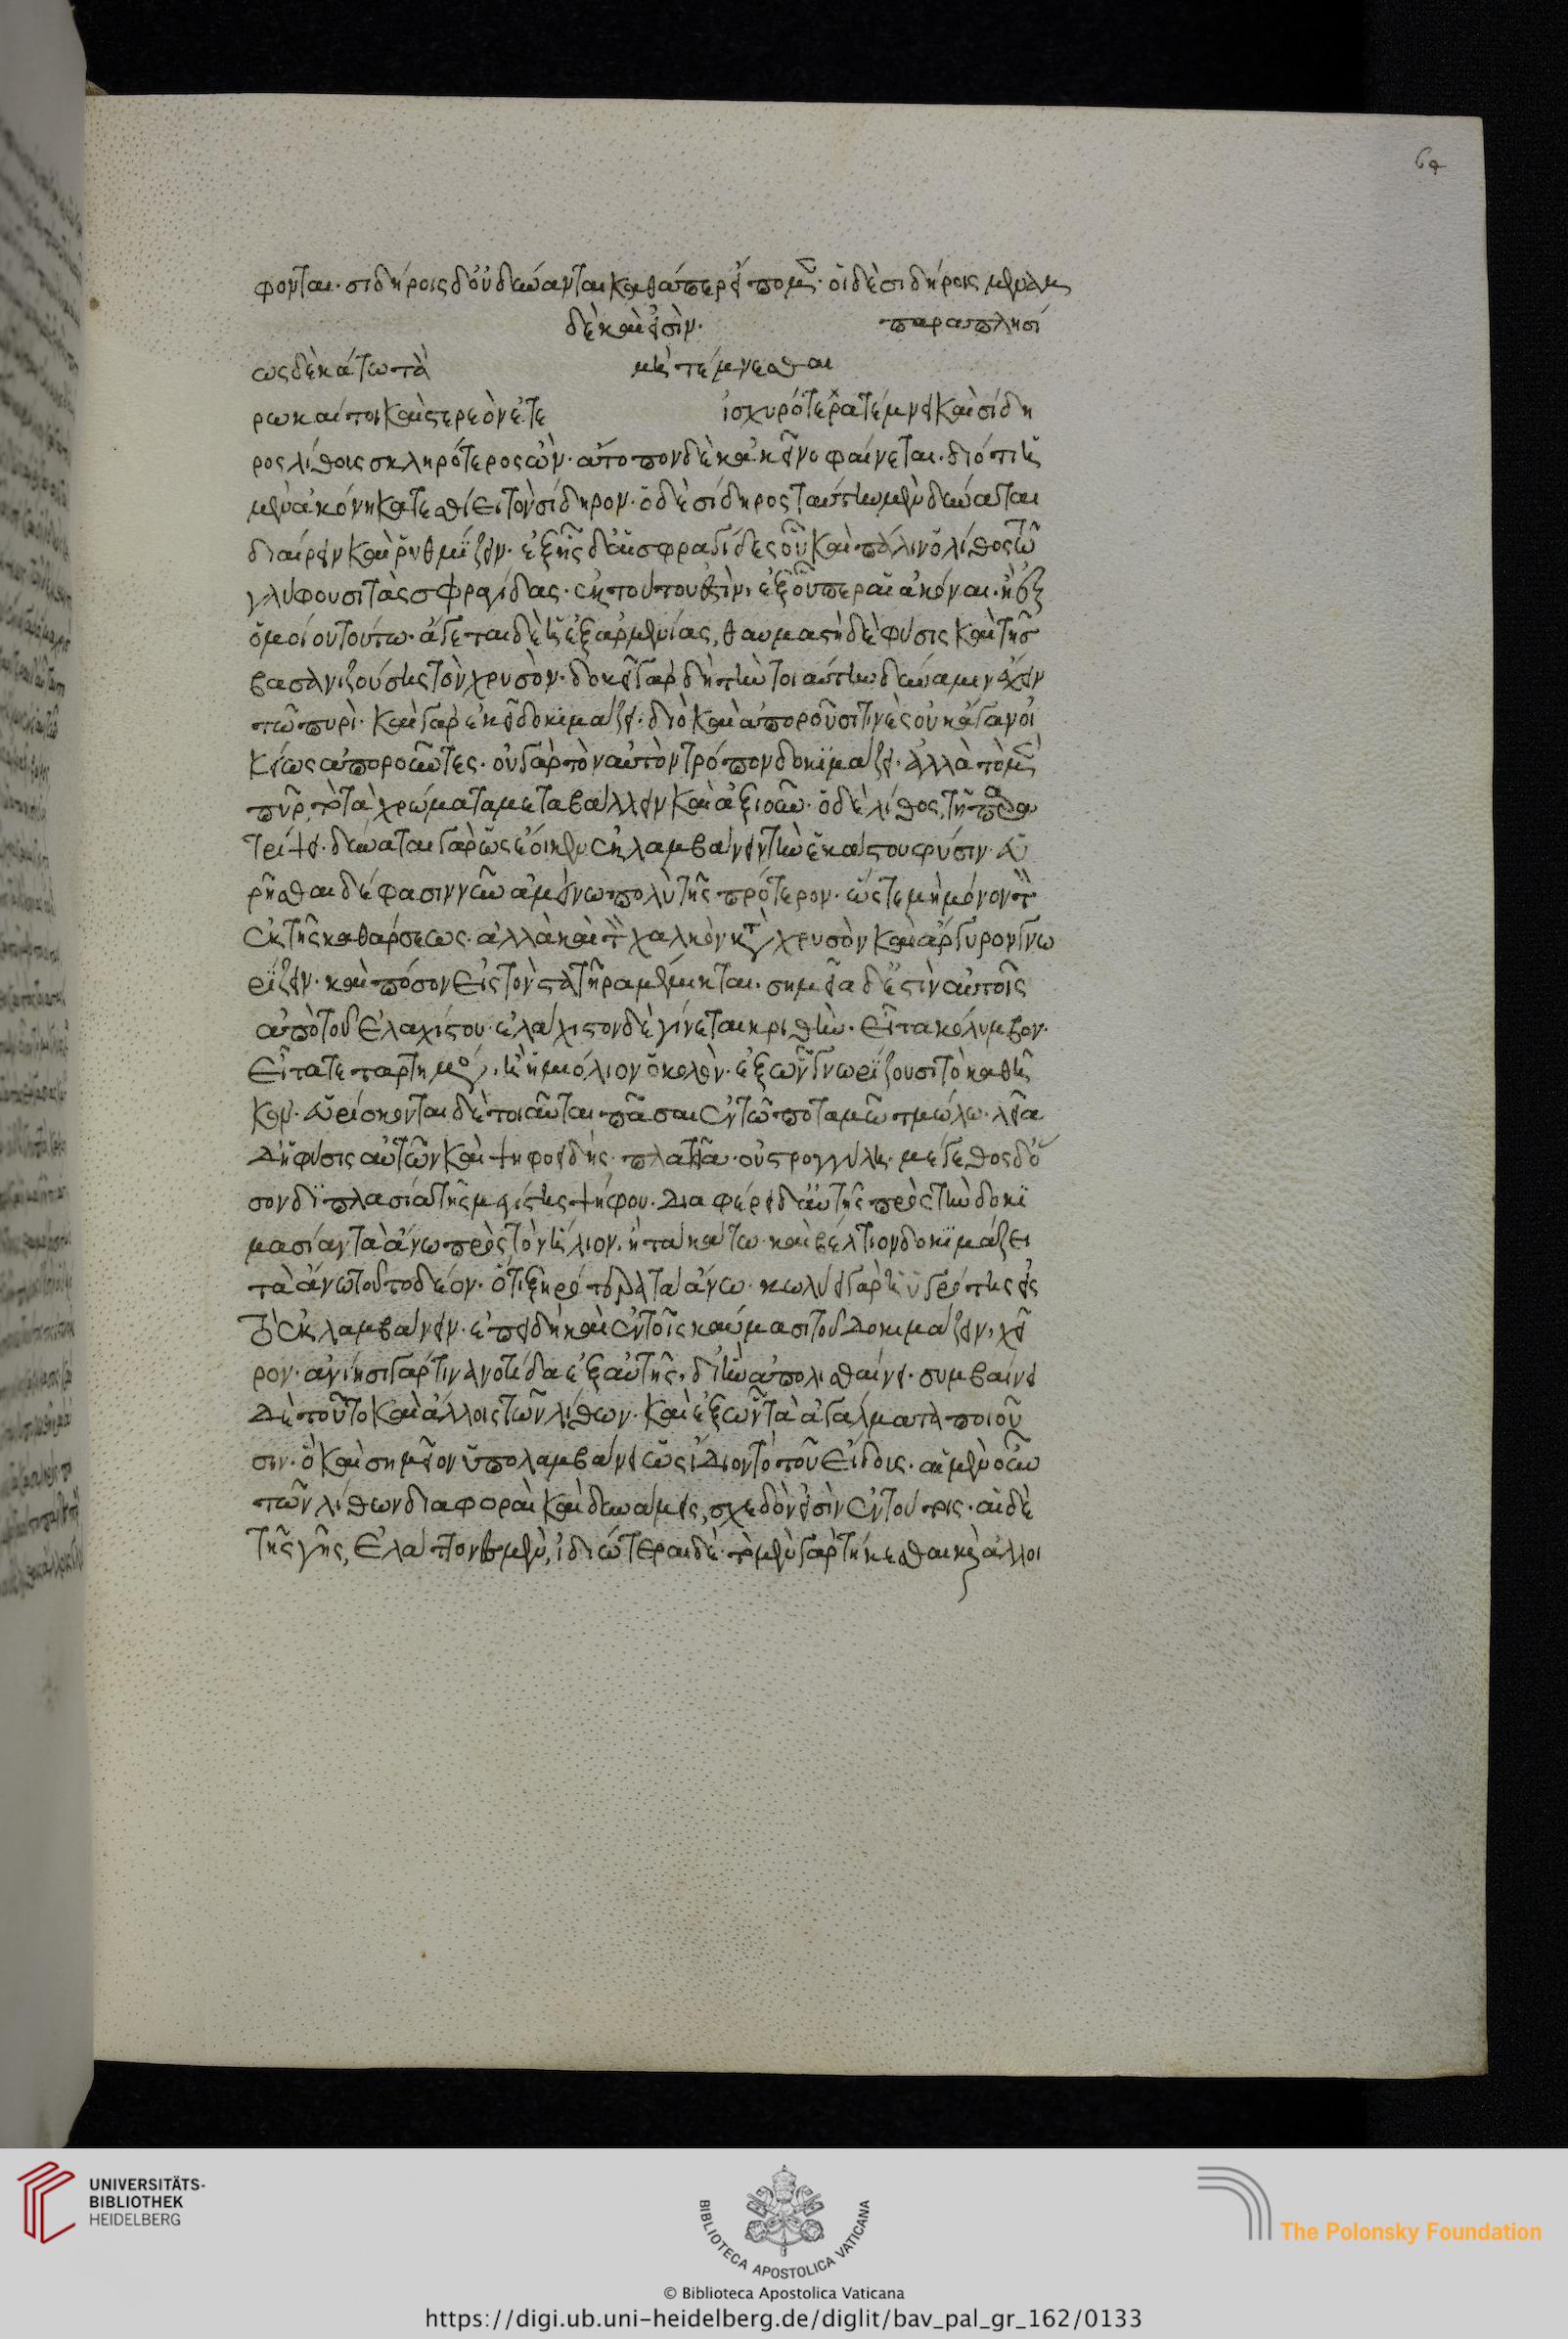 64
φονται· σιδήροις δ' οὐ δύνανται καθάπερ εἴπομεν· οἱ δὲ σιδήροις μὲν ἄλλ
δὲ καὶ εἰσὶν· παραπλησί
ως δὲ κάτω τὰ μὴ τέμνεσθαι
ρω καίτοι καὶ στερεὸν ἔτε ἰσχυρότερα τέμνει καὶ σίδη
ρος λίθοις σκληρότερος ὢν· ἄτοπον δὲ κἀκεῖνο φαίνεται· διότι ἡ
μὲν ἀκόνη κατεσθίει τὸν σίδηρον· ὁ δὲ σίδηρος ταύτην μὲν δύναται
διαιρεῖν καὶ ῥυθμίζειν· ἐξ ἧς δ' αἱ σφραγίδες οὔ καὶ πάλιν ὁ λίθος ᾧ
γλύφουσι τὰς σφραγίδας· ἐκ τούτου ἐστὶν, ἐξ οὗπερ αἱ ἀκόναι· ἢ ἐξ
ὁμοίου τούτω· ἄγεται δὲ ἡ ἐξ ἀρμενίας, θαυμαστὴ δὲ φύσις καὶ τῆς
βασανιζούσης τὸν χρυσὸν· δοκεῖ γὰρ δὴ τὴν τοιαύτην δύναμιν ἔχειν
τῶ πυρὶ· καὶ γὰρ ἐκεῖ δοκιμάζει· διὸ καὶ ἀποροῦσι τινὲς οὐκ ἄγαν οἰ
κείως ἀποροῦντες· οὐ γὰρ τὸν αὐτὸν τρόπον δοκιμάζει· ἀλλὰ τὸ μὲν
πῦρ, τὸ τὰ χρώματα μεταβάλλειν καὶ ἀξιοῦν· ὁ δὲ λίθος, τῆ παρα
τρίψει· δύναται γὰρ ὡς ἔοικεν ἐκλαμβάνειν τὴν ἑκάστου φύσιν· εὑ
ρῆσθαι δέ φασιν νῦν ἀμείνω πολὺ τῆς πρότερον· ὥστε μὴ μόνον τὸν
ἐκ τῆς καθάρσεως· ἀλλὰ καὶ τὸν χαλκὸν κατάχρυσον καὶ ἄργυρον γνω
ρίζειν· καὶ πόσον εἰς τὸν στατῆρα μέμικται· σημεῖα δ' ἐστὶν αὐτοῖς
ἀπὸ τοῦ ἐλαχίστου· ἐλάχιστον δὲ γίνεται κριθὴν· εἶτα κόλυμβον·
εἶτα τεταρτημό, ἢ ἡμιόλιον ὀκολὸν· ἐξ ὧν γνωρίζουσι τὸ καθῆ
κον· εὑρίσκονται δὲ τοιαῦται πᾶσαι ἐν τῶ ποταμῶ τμώλω· λεία
δ' ἡ φύσις αὐτῶν καὶ ψηφοειδής· πλατεῖα· οὐ στρογγύλη· μέγεθος δ' ὅ
σον διπλασία τῆς μεγίστης ψήφου. διαφέρει δ' αὐτῆς πρὸς τὴν δοκι
μασίαν τὰ ἄνω πρὸς τὸν ἥλιον, ἢ τὰ κάτω· καὶ βέλτιον δοκιμάζει
τὰ ἄνω τοῦτο δέον· ὅτι ξηρότερα τὰ ἄνω· κωλύει γὰρ ἡ ὑγρότης εἰς
τὸ ἐκλαμβάνειν· ἐπειδὴ καὶ ἐν τοῖς καύμασι τοῦ δοκιμάζειν, χεῖ
ρον· ἀνίησι γάρ τινα νοτίδα ἐξ αὐτῆς, δι' ἣν ἀπολισθαίνει· συμβαίνει
δὲ τοῦτο καὶ ἄλλοις τῶν λίθων· καὶ ἐξ ὧν τὰ ἀγάλματα ποιοῦ
σιν· ὃ καὶ σημεῖον ὑπολαμβάνει ὡς ἴδιον τὸ τοῦ εἴδους. αἱ μὲν οὖν
τῶν λίθων διαφοραὶ καὶ δυνάμεις, σχεδόν εἰσὶν ἐν τούτοις· αἱ δὲ
τῆς γῆς, ἐλάττους μὲν, ἰδιώτεραι δὲ· τὸ μὲν γὰρ τήκεσθαι καὶ ἀλλοι
UNIVERSITÄTS-
BIBLIOTHEK
HEIDELBERG
BIBLIOTECA APOSTOLICA VATICANA
The Polonsky Foundation
© Biblioteca Apostolica Vaticana
https://digi.ub.uni-heidelberg.de/diglit/bav_pal_gr_162/0133